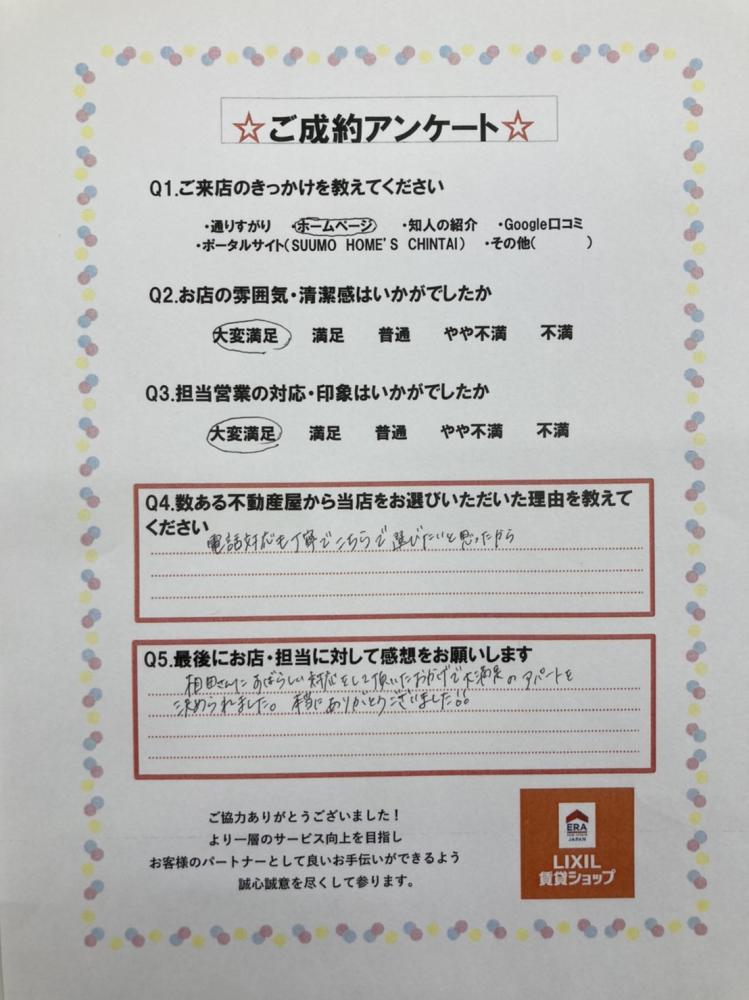 ☆ご成約アンケート☆
Q1.ご来店のきっかけを教えてください
・通りすがり ・ホームページ ・知人の紹介 ・Google口コミ
・ポータルサイト(SUUMO HOME'S CHINTAI) ・その他( )
Q2.お店の雰囲気・清潔感はいかがでしたか
大変満足 満足 普通 やや不満 不満
Q3.担当営業の対応・印象はいかがでしたか
大変満足 満足 普通 やや不満 不満
Q4.数ある不動産屋から当店をお選びいただいた理由を教えて
ください
電話対応も丁寧でこちらで選びたいと思ったから
Q5.最後にお店・担当に対して感想をお願いします
相田さんにすばらしい対応をして頂いたおかげで大満足のアパートを
決められました。本当にありがとうございました!!
ご協力ありがとうございました!
より一層のサービス向上を目指し
お客様のパートナーとして良いお手伝いができるよう
誠心誠意を尽くして参ります。
ERA
JAPAN
LIXIL
賃貸ショップ